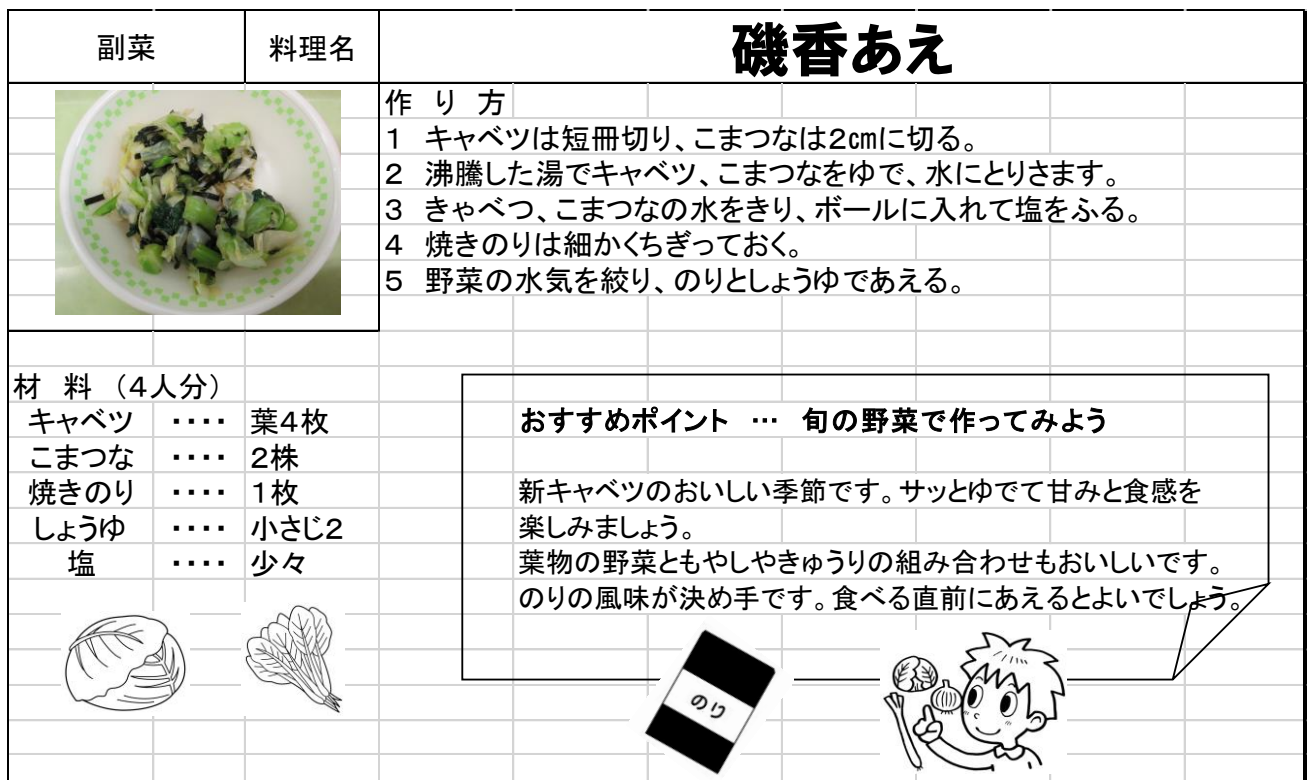 副菜 料理名 磯香あえ
作 り 方
1 キャベツは短冊切り、こまつなは2㎝に切る。
2 沸騰した湯でキャベツ、こまつなをゆで、水にとりさます。
3 きゃべつ、こまつなの水をきり、ボールに入れて塩をふる。
4 焼きのりは細かくちぎっておく。
5 野菜の水気を絞り、のりとしょうゆであえる。
材 料 (4人分)
キャベツ ・・・・ 葉4枚
こまつな ・・・・ 2株
焼きのり ・・・・ 1枚
しょうゆ ・・・・ 小さじ2
塩 ・・・・ 少々
おすすめポイント … 旬の野菜で作ってみよう
新キャベツのおいしい季節です。サッとゆでて甘みと食感を
楽しみましょう。
葉物の野菜ともやしやきゅうりの組み合わせもおいしいです。
のりの風味が決め手です。食べる直前にあえるとよいでしょう。
のり